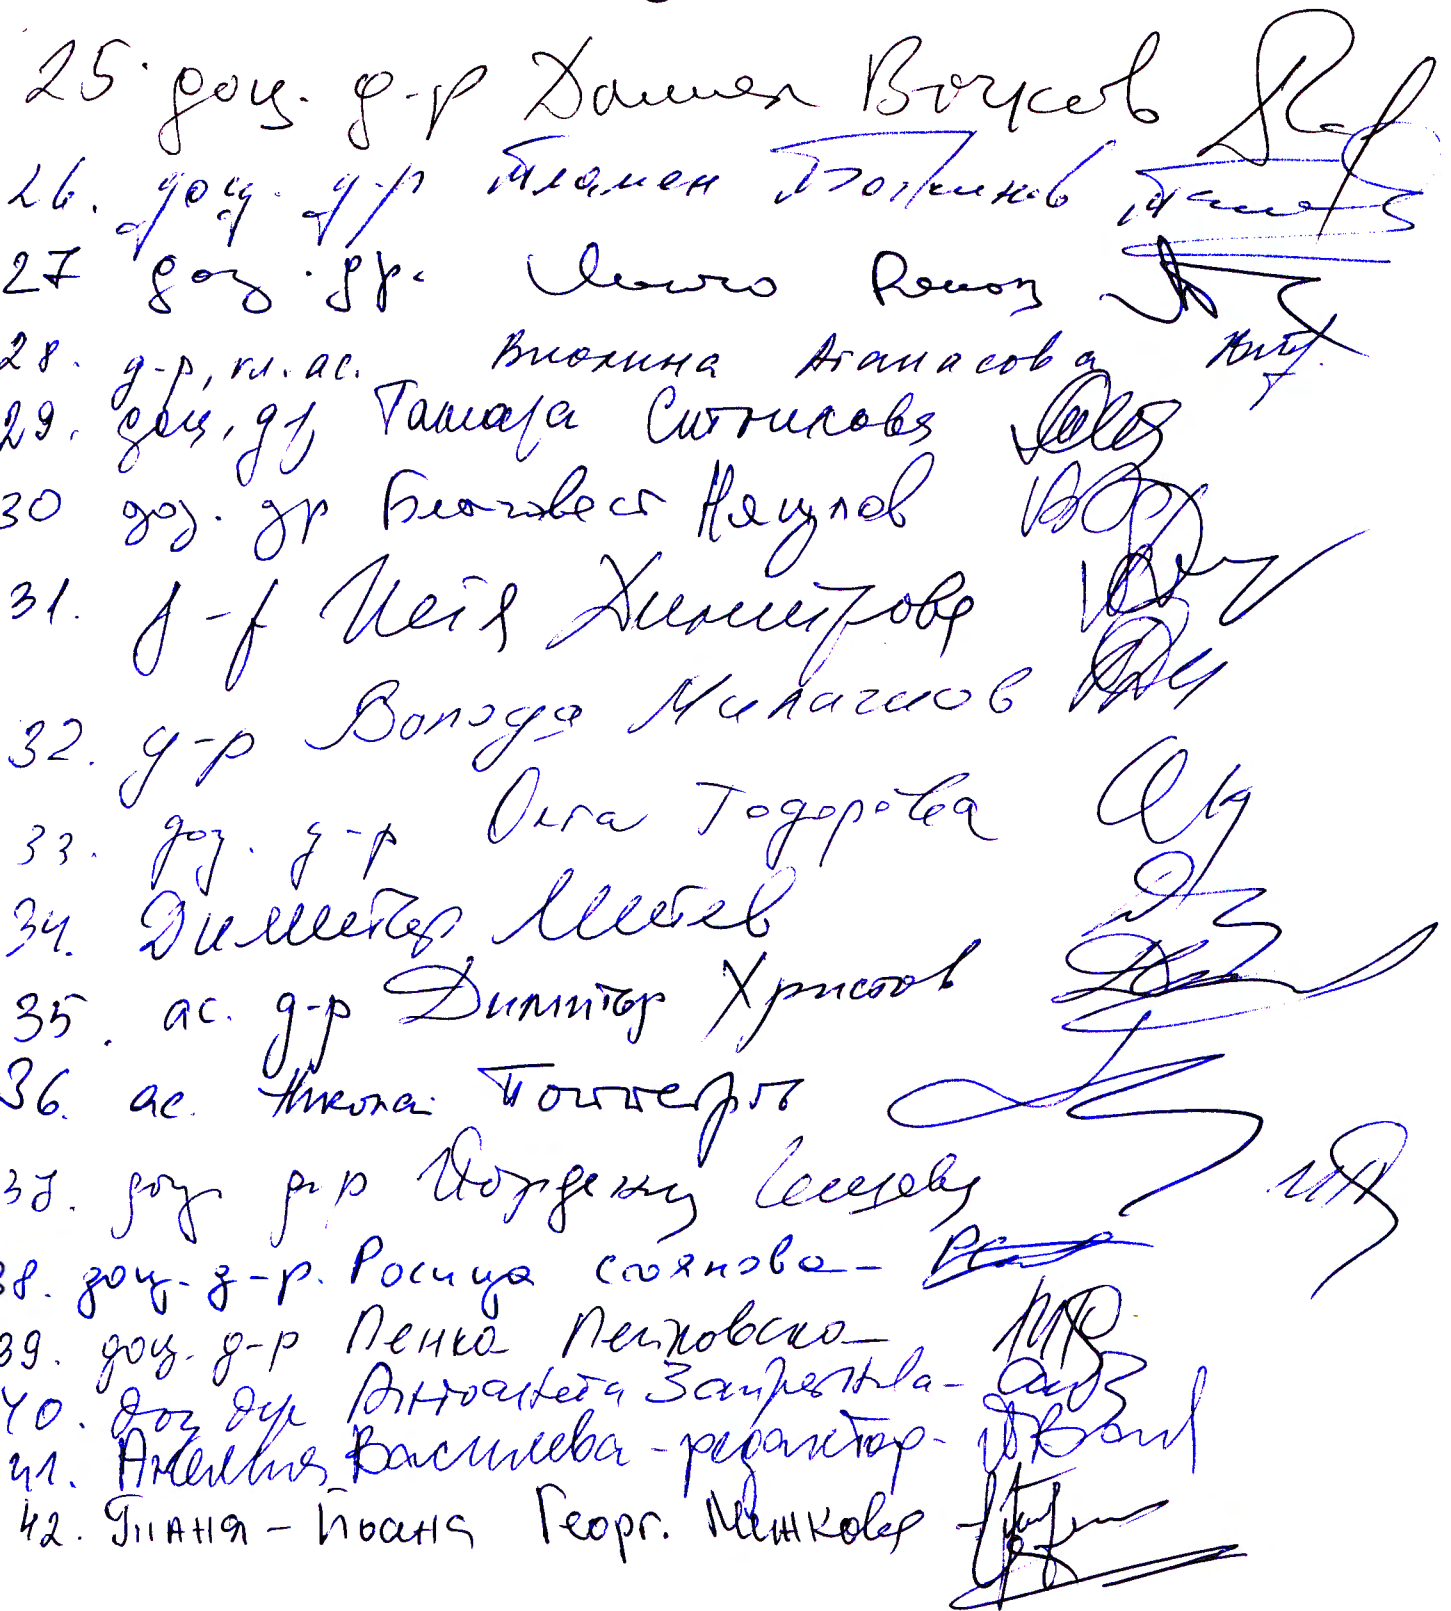 25. доц. д-р Даниел Вачков
26. доц. д-р Пламен Божинов
27 доц. др.
28. д-р, гл. ас. Виолина Атанасова
29. доц. др Тамара Ситникова
30 доц. др Благовест Нягулов
31. д-р Петя Димитрова
32. д-р Володя Милачков
33. доц. д-р Олга Тодорова
34. Димитър Митев
35. ас. д-р Димитър Христов
36. ас. Николай Поппетров
37. доц. д-р Йорданка Гешева
38. доц. д-р. Росица Стоянова -
39. доц. д-р Пенка Пейковска -
40. доц. д-р Антоанета Запрянова -
41. Анелия Василева - редактор -
42. Таня - Йоана Георг. Минкова -